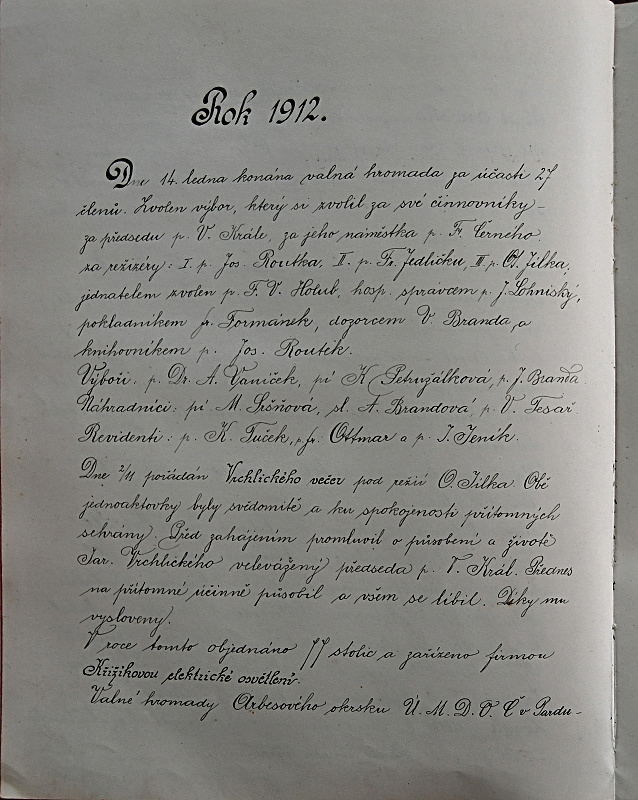 Rok 1912.
Dne 14. ledna konána valná hromada za účasti 27
členů. Zvolen výbor, který si zvolil za své činnovníky –
za předsedu p. V. Krále, za jeho náměstka p. Fr. Černého.
za režizéry: I. p. Jos. Routka, II. p. Fr. Jedličku, III p. O. Jilka,
jednatelem zvolen p. F. V. Holub, hosp. správcem p. J. Lohniský,
pokladníkem fr. Formánek, dozorcem V. Branda, a
knihovníkem p. Jos. Routek.
Výboři: p. Dr. A. Vaníček, pí K. Petružálková, p. J. Branda.
Náhradníci: pí M. Sršňová, sl. A. Brandová, p. V. Tesař.
Revidenti: p. K. Tuček, p. fr. Ottmar a p. I. Jeník.
Dne 2/11 pořádán Vrchlického večer pod režií O. Jilka. Obě
jednoaktovky byly svědomitě a ku spokojenosti přítomných
sehrány. Před zahájením promluvil o působení a životě
Jar. Vrchlického velevážený předseda p. V. Král. Přednes
na přítomné účinně působil a všem se líbil. Díky mu
vysloveny.
V roce tomto objednáno stolic a zařízeno firmou
Křižíkovou elektrické osvětlení.
Valné hromady Arbesového okrsku Ú. M. D. O. Č v Pardu-